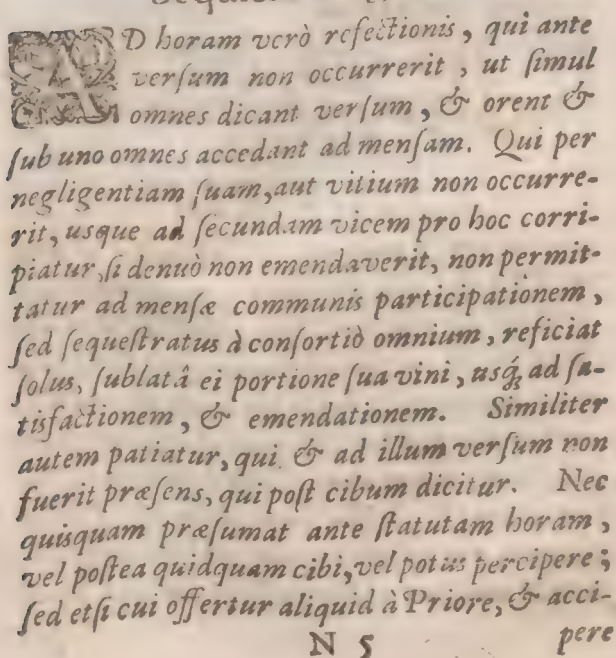 AD horam verò refectionis, qui ante
versum non occurrerit, ut simul
omnes dicant versum, & orent &
sub uno omnes accedant ad mensam. Qui per
negligentiam suam, aut vitium non occurre-
rit, usque ad secundam vicem pro hoc corri-
piatur, si denuò non emendaverit, non permit-
tatur ad mensæ communis participationem,
sed sequestratus à consortiò omnium, reficiat
solus, sublatâ ei portione sua vini, usq; ad sa-
tisfactionem, & emendationem. Similiter
autem patiatur, qui & ad illum versum non
fuerit præsens, qui post cibum dicitur. Nec
quisquam præsumat ante statutam horam,
vel postea quidquam cibi, vel potus percipere;
sed etsi cui offertur aliquid à Priore, & acci-
N 5 pere